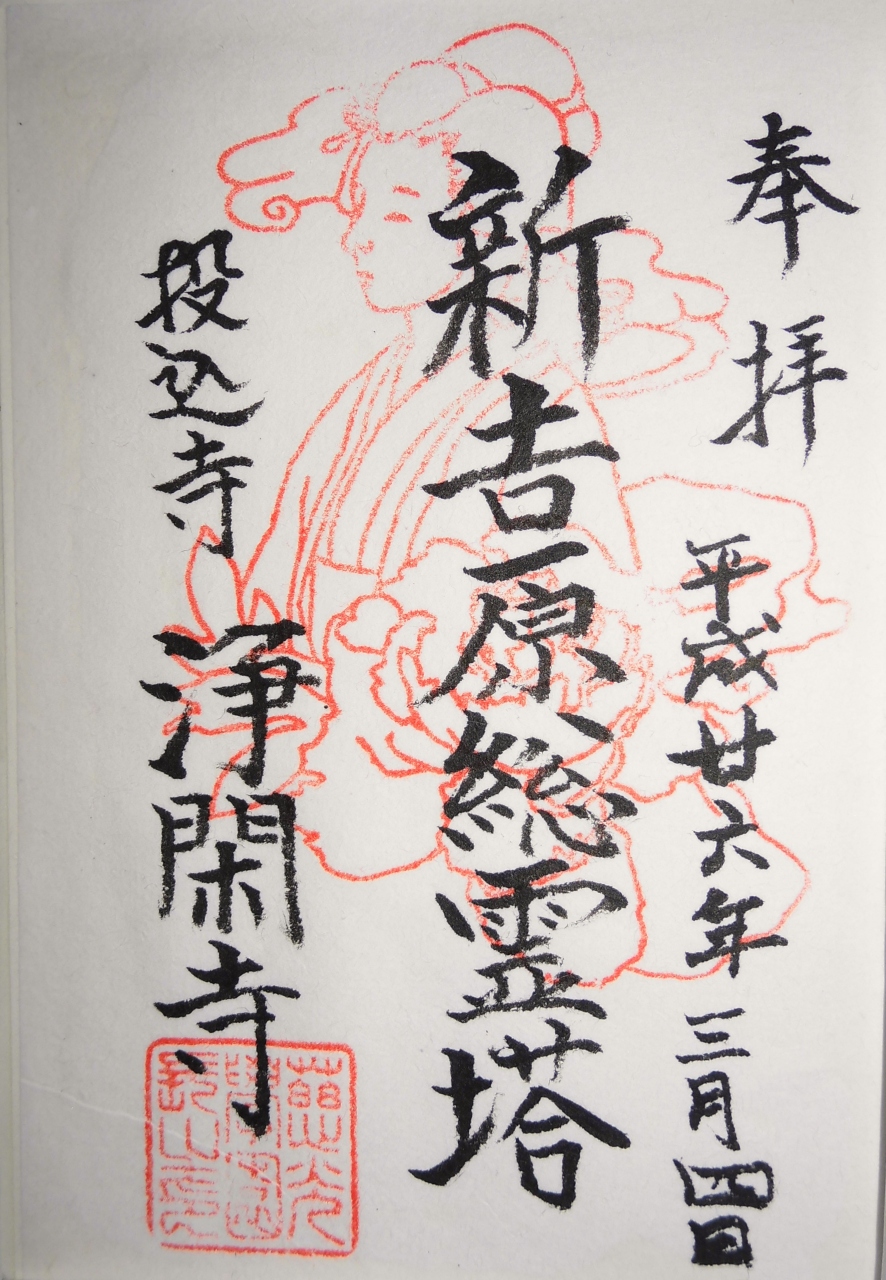 奉拝
平成廿六年三月四日
新吉原総霊塔
投込寺
浄閑寺